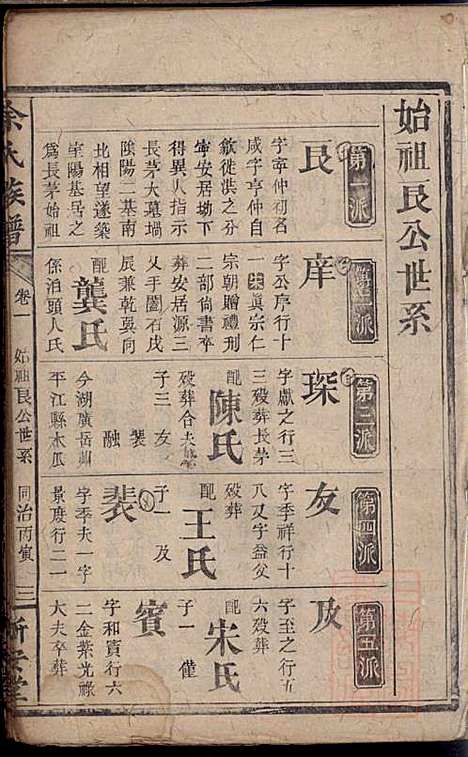 始祖艮公世系
第一派
艮
字寧仲初名
咸字亨仲自
歙徙洪之分
寧安居坳下
得異人指示
長茅大墓堝
陰陽二基南
北相望遂築
室陽基居之
爲長茅始祖
第二派
庠
字公序行十
一宋眞宗仁
宗朝贈禮刑
二部尙書卒
葬安居源三
乂手圖石戌
辰兼乾巽向
配
龔氏
係泊頭人氏
第三派
琛
字獻之行三
三殁葬長茅
配
陳氏
殁葬合夫
子三友
裴 融
今湖廣岳州
平江縣木瓜
第四派
友
字季祥行十
八又字益父
殁葬
配
王氏
子一及
裴
字季夫一字
景度行二一
第五派
及
字至之行五
六殁葬
配
宋氏
子一僅
賓
字和賓行六
二金紫光祿
大夫卒葬
余氏族譜
卷一
始祖艮公世系
同治丙寅
三
新安堂